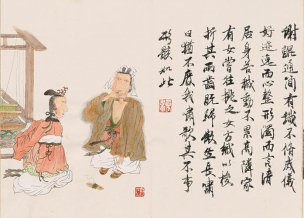 謝鯤通簡有識不脩威儀
好迹逸而心整形濁而言清
居身若穢動不累高隣家
有女嘗往挑之女方織以梭
折其兩齒既歸傲然長嘯
曰猶不廢我嘯歌其不事
形骸如此